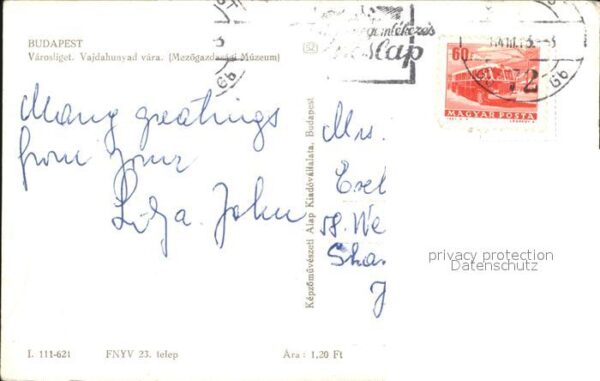 BUDAPEST
Városliget. Vajdahunyad vára. (Mezőgazdasági Múzeum)
Many greatings
from your
John
Képzőművészeti Alap Kiadóvállalata, Budapest
52
Mrs.
58. We
Sha
J
60
MAGYAR POSTA
72
privacy protection
Datenschutz
I. 111-624
FNYV 23. telep
Ára : 1,20 Ft